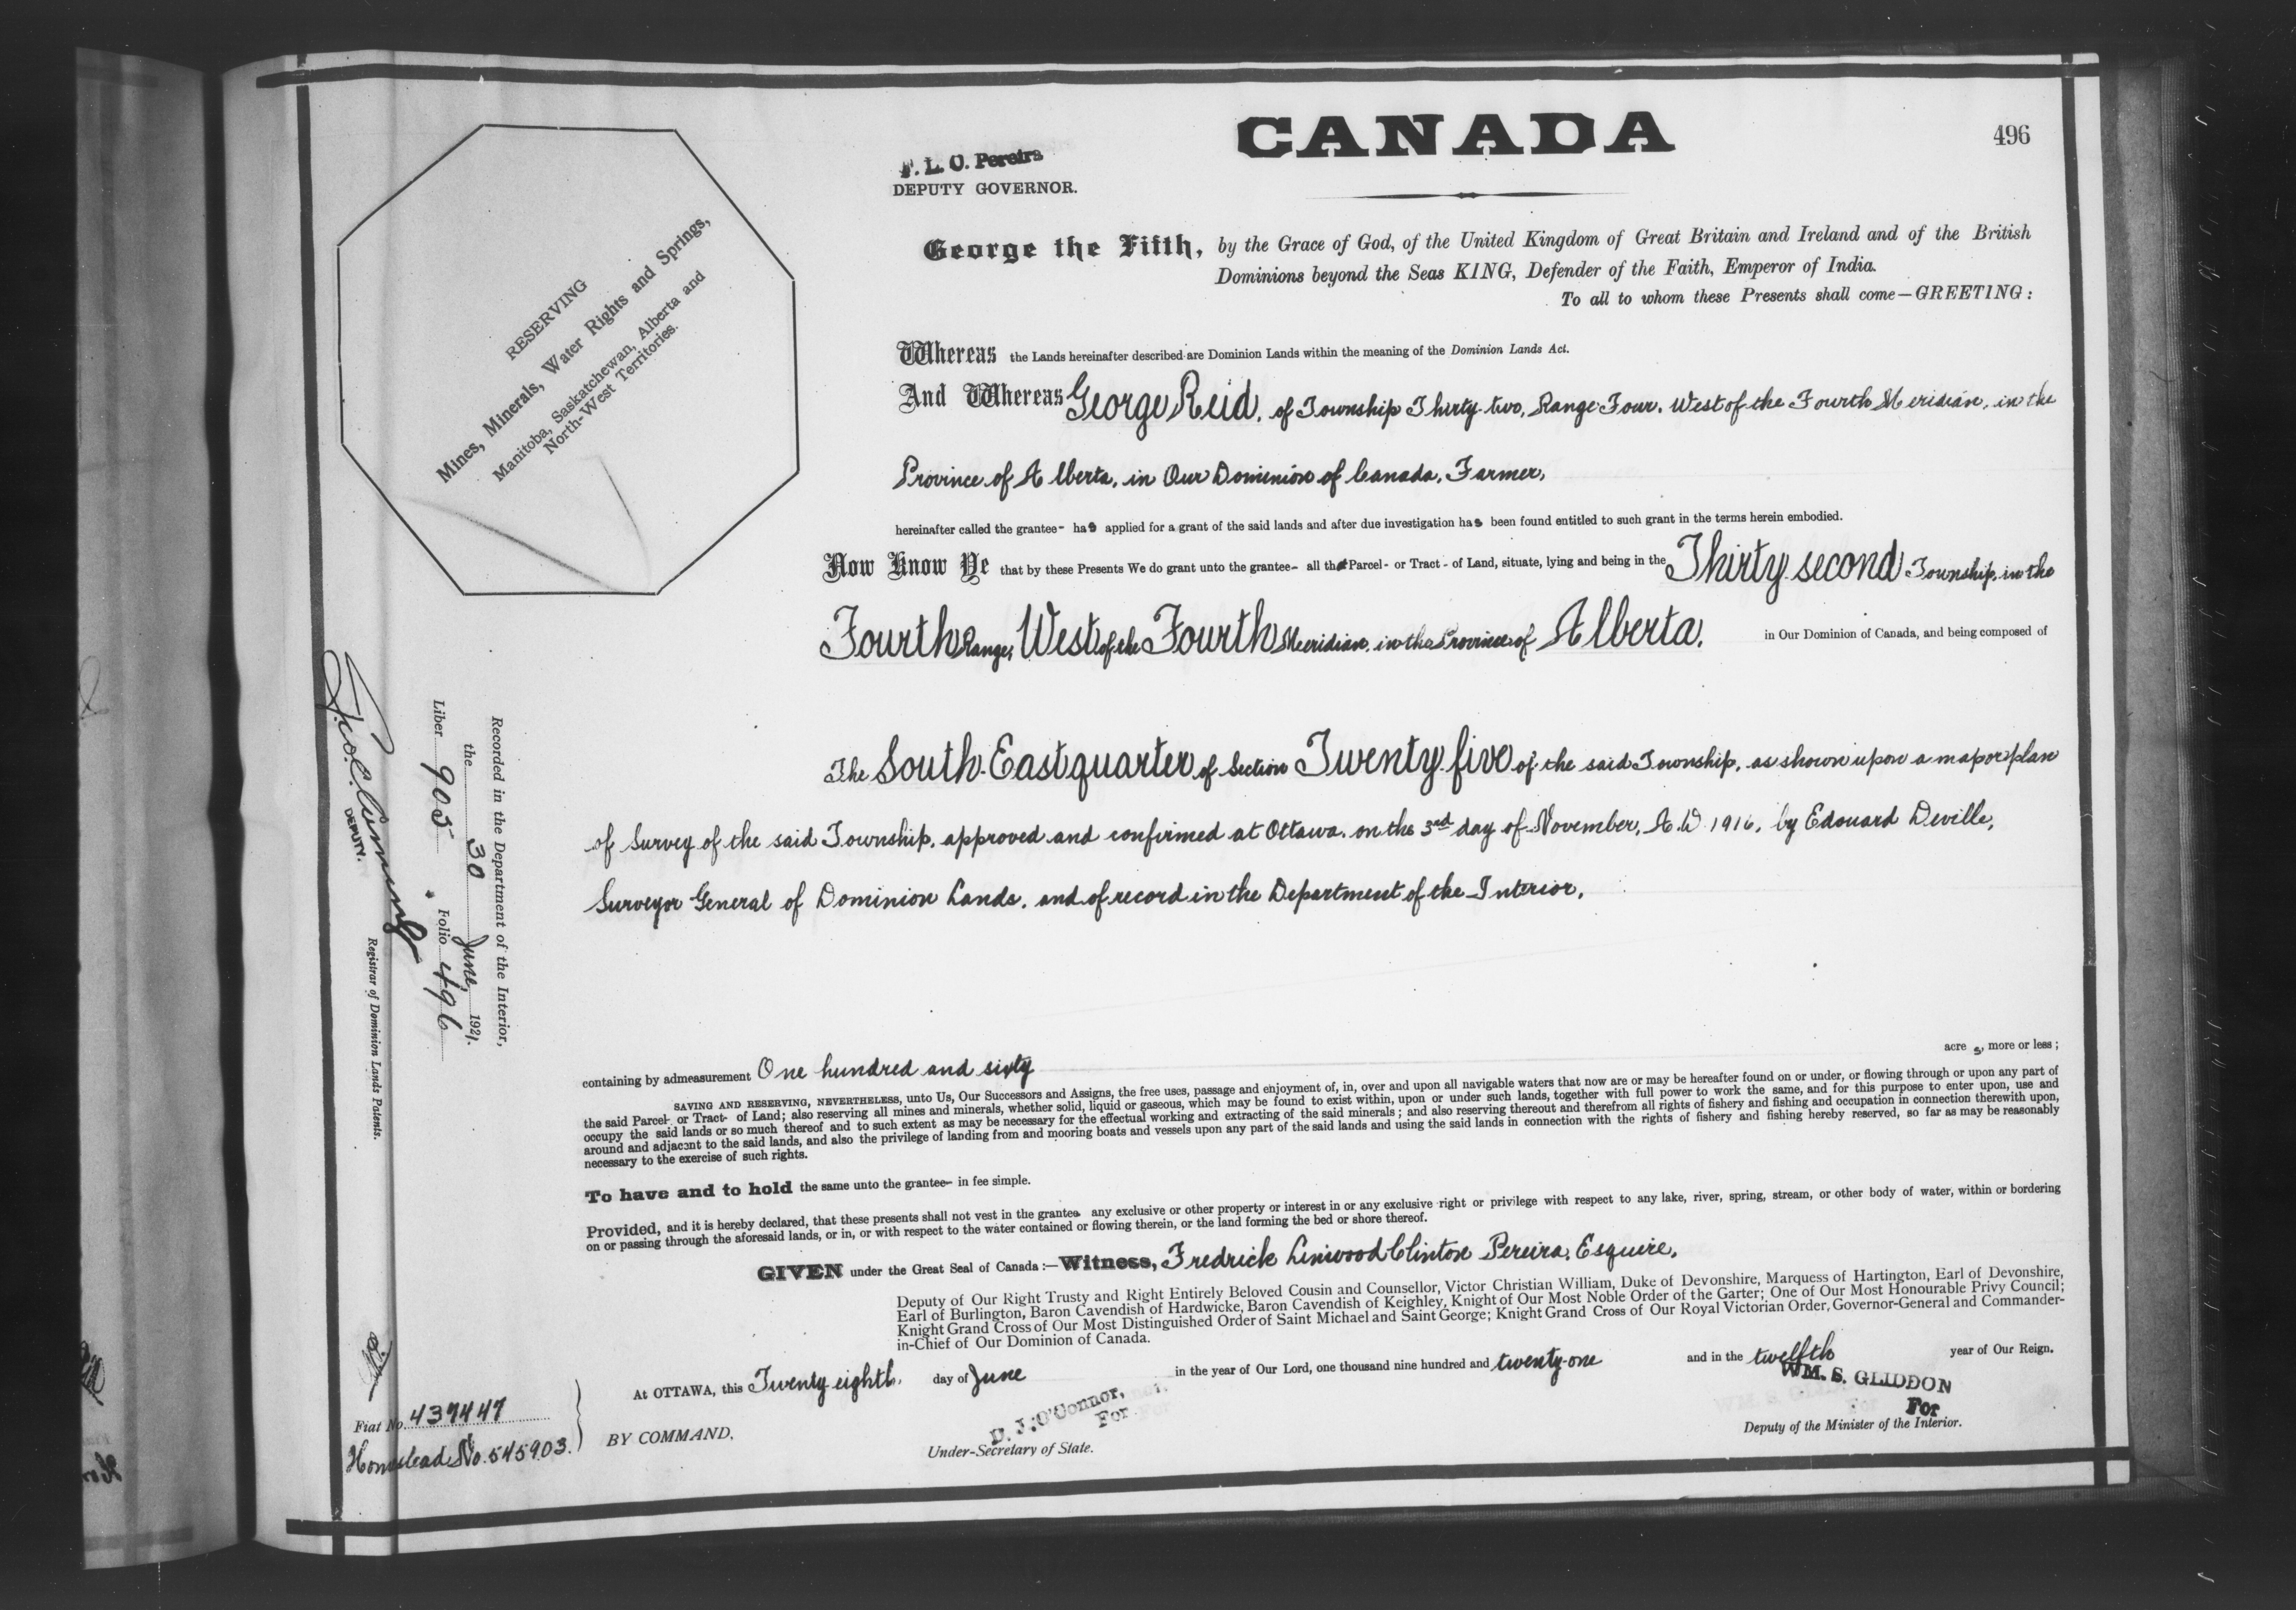 CANADA
496
F. L. C. Pereira
DEPUTY GOVERNOR.
George the Fifth, by the Grace of God, of the United Kingdom of Great Britain and Ireland and of the British
Dominions beyond the Seas KING, Defender of the Faith, Emperor of India.
To all to whom these Presents shall come—GREETING:
RESERVING
Mines, Minerals, Water Rights and Springs,
Manitoba, Saskatchewan, Alberta and
North-West Territories.
Whereas the Lands hereinafter described are Dominion Lands within the meaning of the Dominion Lands Act.
And Whereas George Reid, of Township Thirty-two, Range Four, West of the Fourth Meridian, in the
Province of Alberta, in Our Dominion of Canada, Farmer,
hereinafter called the grantee- has applied for a grant of the said lands and after due investigation has been found entitled to such grant in the terms herein embodied.
Now Know Ye that by these Presents We do grant unto the grantee- all that Parcel- or Tract- of Land, situate, lying and being in the Thirty second Township, in the
Fourth Range, West of the Fourth Meridian, in the Province of Alberta, in Our Dominion of Canada, and being composed of
The South East quarter of Section Twenty five of the said Township, as shown upon a map or plan
of Survey of the said Township, approved and confirmed at Ottawa, on the 3rd day of November, A.D. 1916, by Edouard Deville,
Surveyor General of Dominion Lands, and of record in the Department of the Interior.
Recorded in the Department of the Interior,
the 30 June, 1921.
Liber 905 Folio 496
DEPUTY.
Registrar of Dominion Lands Patents.
containing by admeasurement One hundred and sixty acre s, more or less;
SAVING AND RESERVING, NEVERTHELESS, unto Us, Our Successors and Assigns, the free uses, passage and enjoyment of, in, over and upon all navigable waters that now are or may be hereafter found on or under, or flowing through or upon any part of
the said Parcel- or Tract- of Land; also reserving all mines and minerals, whether solid, liquid or gaseous, which may be found to exist within, upon or under such lands, together with full power to work the same, and for this purpose to enter upon, use and
occupy the said lands or so much thereof and to such extent as may be necessary for the effectual working and extracting of the said minerals; and also reserving thereout and therefrom all rights of fishery and fishing and occupation in connection therewith upon,
around and adjacent to the said lands, and also the privilege of landing from and mooring boats and vessels upon any part of the said lands and using the said lands in connection with the rights of fishery and fishing hereby reserved, so far as may be reasonably
necessary to the exercise of such rights.
To have and to hold the same unto the grantee- in fee simple.
Provided, and it is hereby declared, that these presents shall not vest in the grantee- any exclusive or other property or interest in or any exclusive right or privilege with respect to any lake, river, spring, stream, or other body of water, within or bordering
on or passing through the aforesaid lands, or in, or with respect to the water contained or flowing therein, or the land forming the bed or shore thereof.
GIVEN under the Great Seal of Canada:—Witness, Fredrick Linwood Clinton Pereira, Esquire,
Deputy of Our Right Trusty and Right Entirely Beloved Cousin and Counsellor, Victor Christian William, Duke of Devonshire, Marquess of Hartington, Earl of Devonshire,
Earl of Burlington, Baron Cavendish of Hardwicke, Baron Cavendish of Keighley, Knight of Our Most Noble Order of the Garter; One of Our Most Honourable Privy Council;
Knight Grand Cross of Our Most Distinguished Order of Saint Michael and Saint George; Knight Grand Cross of Our Royal Victorian Order, Governor-General and Commander-
in-Chief of Our Dominion of Canada.
At OTTAWA, this Twenty eighth, day of June in the year of Our Lord, one thousand nine hundred and twenty-one and in the twelfth year of Our Reign.
BY COMMAND,
D. J. O'Connor,
For
Under-Secretary of State.
WM. S. GLIDDON
For
Deputy of the Minister of the Interior.
Fiat No. 437447
Homestead No. 545903.